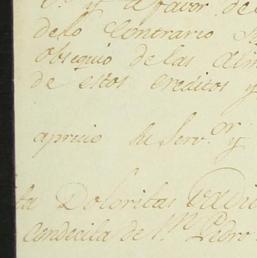 y a favor de
delo Contrario
Obsequio de las Alm
de estos creditos y
aprecio su Serv.or y
ta Doloritas
Condecita de Pedro